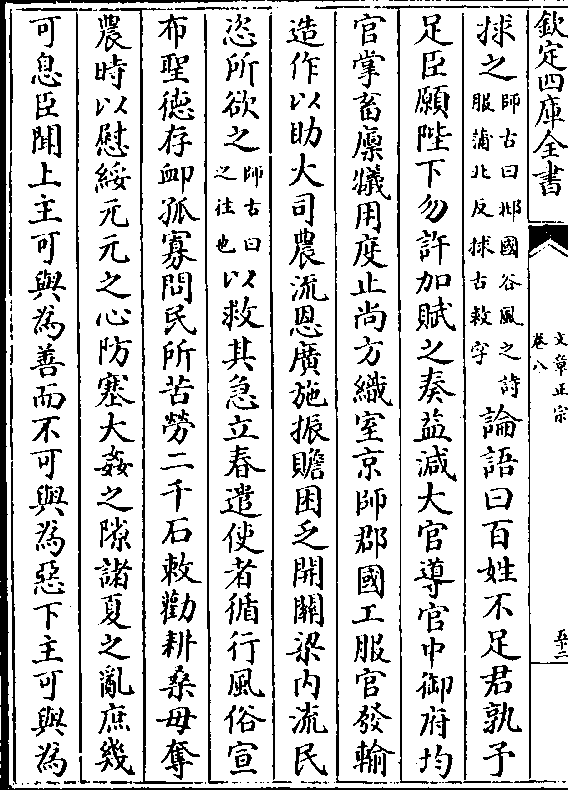 欽定四庫全書
文章正宗
卷八
捄之師古曰邶國谷風之詩服蒲北反捄古救字論語曰百姓不足君孰予
足臣願陛下勿許加賦之奏益減大官導官中御府均
官掌畜廩犧用度止尚方織室京師郡國工服官發輸
造作以助大司農流恩廣施振贍困乏開關梁内流民
恣所欲之師古曰之往也以救其急立春遣使者循行風俗宣
布聖德存卹孤寡問民所苦勞二千石敕勸耕桑毋奪
農時以慰綏元元之心防塞大姦之隙諸夏之亂庶幾
可息臣聞上主可與為善而不可與為惡下主可與為